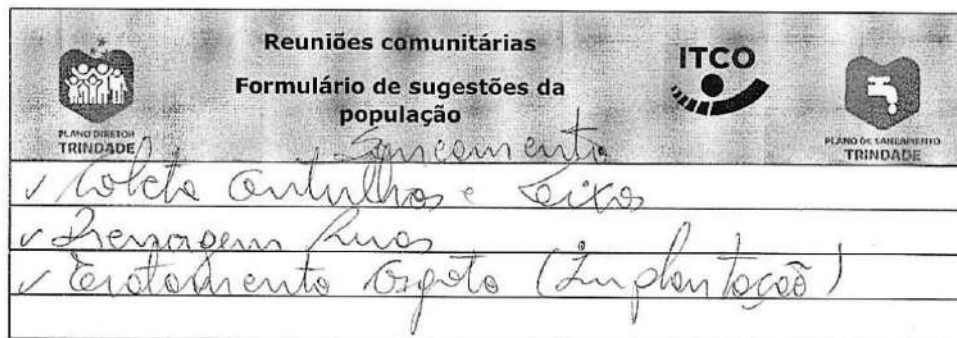 Reuniões comunitárias
Formulário de sugestões da
população
ITCO
PLANO DIRETOR
TRINDADE
PLANO DE SANEAMENTO
TRINDADE
Saneamento
✓ Coleta entulhos e Lixos
✓ Drenagem Ruas
✓ Tratamento Esgoto (Implantação)